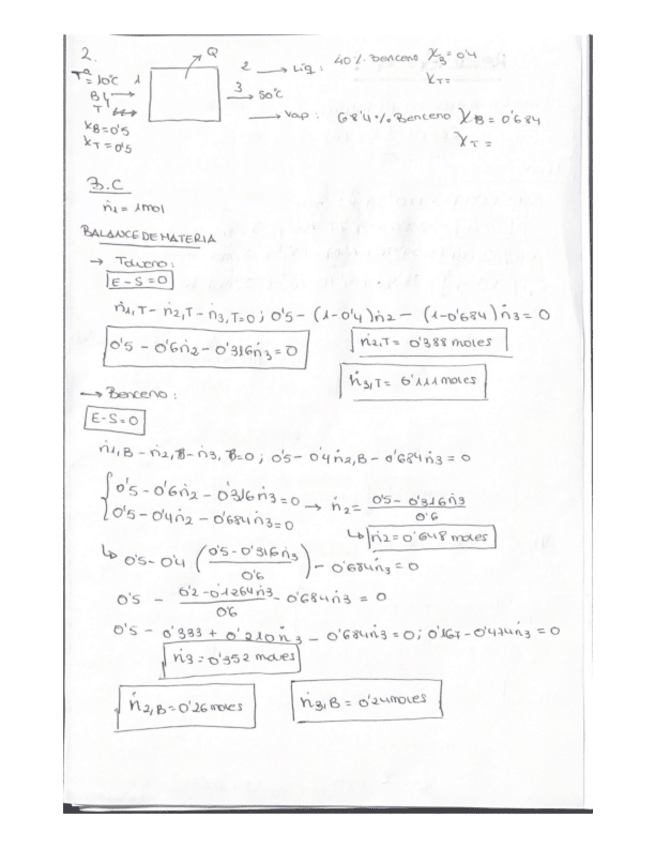 2.
Q
Tª = 10ºC 1
B
T
X_B = 0'5
X_T = 0'5
2 → Liq: 40% Benceno X_B = 0'4
X_T =
3 → 50ºC
→ Vap: 68'4% Benceno X_B = 0'684
X_T =
B.C
ṅ1 = 1mol
BALANCE DE MATERIA
→ Tolueno:
E - S = 0
ṅ1,T - ṅ2,T - ṅ3,T = 0; 0'5 - (1-0'4)ṅ2 - (1-0'684)ṅ3 = 0
0'5 - 0'6ṅ2 - 0'316ṅ3 = 0
ṅ2,T = 0'388 moles
ṅ3,T = 0'111 moles
→ Benceno:
E - S = 0
ṅ1,B - ṅ2,B - ṅ3,B = 0; 0'5 - 0'4ṅ2,B - 0'684ṅ3 = 0
0'5 - 0'6ṅ2 - 0'316ṅ3 = 0 → ṅ2 = (0'5 - 0'316ṅ3)/0'6
0'5 - 0'4ṅ2 - 0'684ṅ3 = 0
↳ ṅ2 = 0'648 moles
↳ 0'5 - 0'4 ((0'5 - 0'316ṅ3)/0'6) - 0'684ṅ3 = 0
0'5 - (0'2 - 0'1264ṅ3)/0'6 - 0'684ṅ3 = 0
0'5 - 0'333 + 0'210ṅ3 - 0'684ṅ3 = 0; 0'167 - 0'474ṅ3 = 0
ṅ3 = 0'352 moles
ṅ2,B = 0'26 moles
ṅ3,B = 0'24 moles